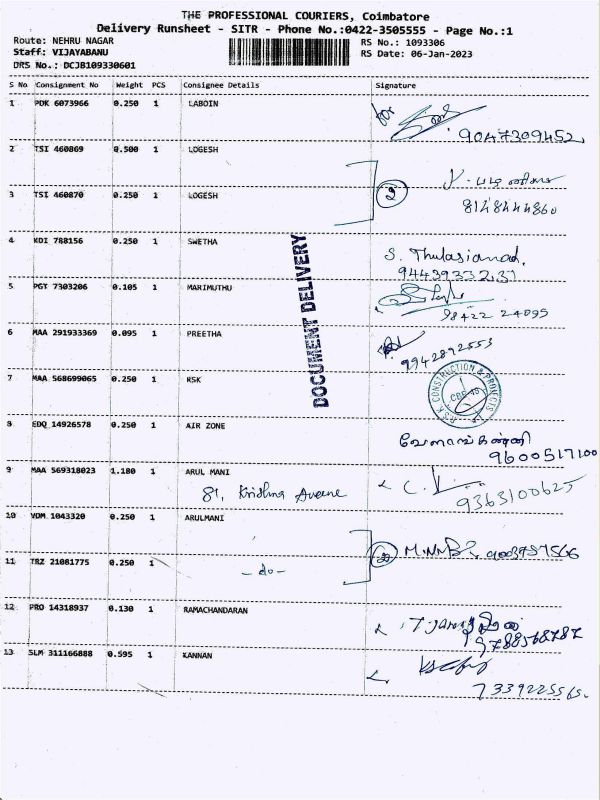 THE PROFESSIONAL COURIERS, Coimbatore
Delivery Runsheet - SITR - Phone No.:0422-3505555 - Page No.:1
Route: NEHRU NAGAR
Staff: VIJAYABANU
DRS No.: DCJB109330601
RS No.: 1093306
RS Date: 06-Jan-2023
S No Consignment No Weight PCS Consignee Details Signature
1 PDK 6073966 0.250 1 LABOIN
9047309452
2 TSI 460869 0.500 1 LOGESH
3 TSI 460870 0.250 1 LOGESH
2
8148444860
4 KOI 788156 0.250 1 SWETHA
S. Thulasianad,
9443933231
5 PGT 7303206 0.105 1 MARIMUTHU
98422 24095
6 MAA 291933369 0.095 1 PREETHA
9942892553
DOCUMENT DELIVERY
7 MAA 568699065 0.250 1 RSK
R.S.K CONSTRUCTION & PROJECTS
8 EDQ 14926578 0.250 1 AIR ZONE
வேளாங்கண்ணி
9600517100
9 MAA 569318023 1.180 1 ARUL MANI
81, Krishna Avenue
9363100625
10 VDM 1043320 0.250 1 ARULMANI
11 TRZ 21081775 0.250 1
- do -
2
12 PRO 14318937 0.130 1 RAMACHANDARAN
9788568787
13 SLM 311166888 0.595 1 KANNAN
7339225565.